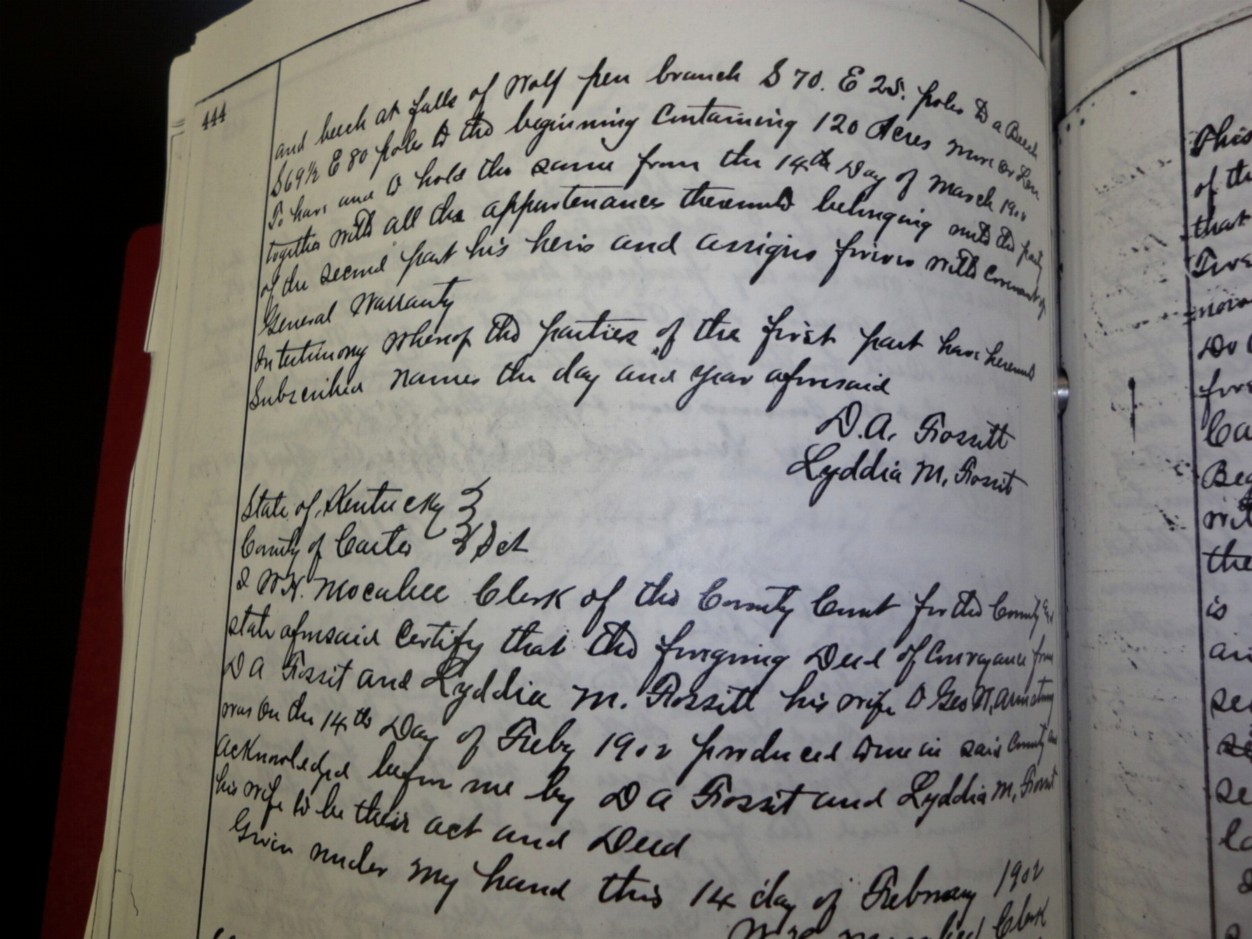 444
and beech at falls of Wolf pen branch S 70. E 25. poles to a Beech
S 69½ E 80 poles to the beginning Containing 120 Acres more or Less
To have and to hold the same from the 14th Day of March 1902
together with all the appurtenances thereunto belonging unto the party
of the second part his heirs and assigns forever with covenant of
General Warranty
In testimony whereof the parties of the first part have hereunto
Subscribed names the day and year aforesaid
D. A. Fossitt
Lyddia M. Fossit
State of Kentucky }
County of Carter } Sct
I W. H. Mocabee Clerk of the County Court for the County and
state aforesaid Certify that the forgoing Deed of Conveyance from
D A Fossit and Lyddia M. Fossitt his wife to Geo W. Armstrong
was on the 14th Day of Feby 1902 produced to me in said County and
acknowledged before me by D A Fossit and Lyddia M. Fossit
his wife to be their act and Deed
Given under my hand this 14 day of February 1902
Clerk
This
of the
that
is